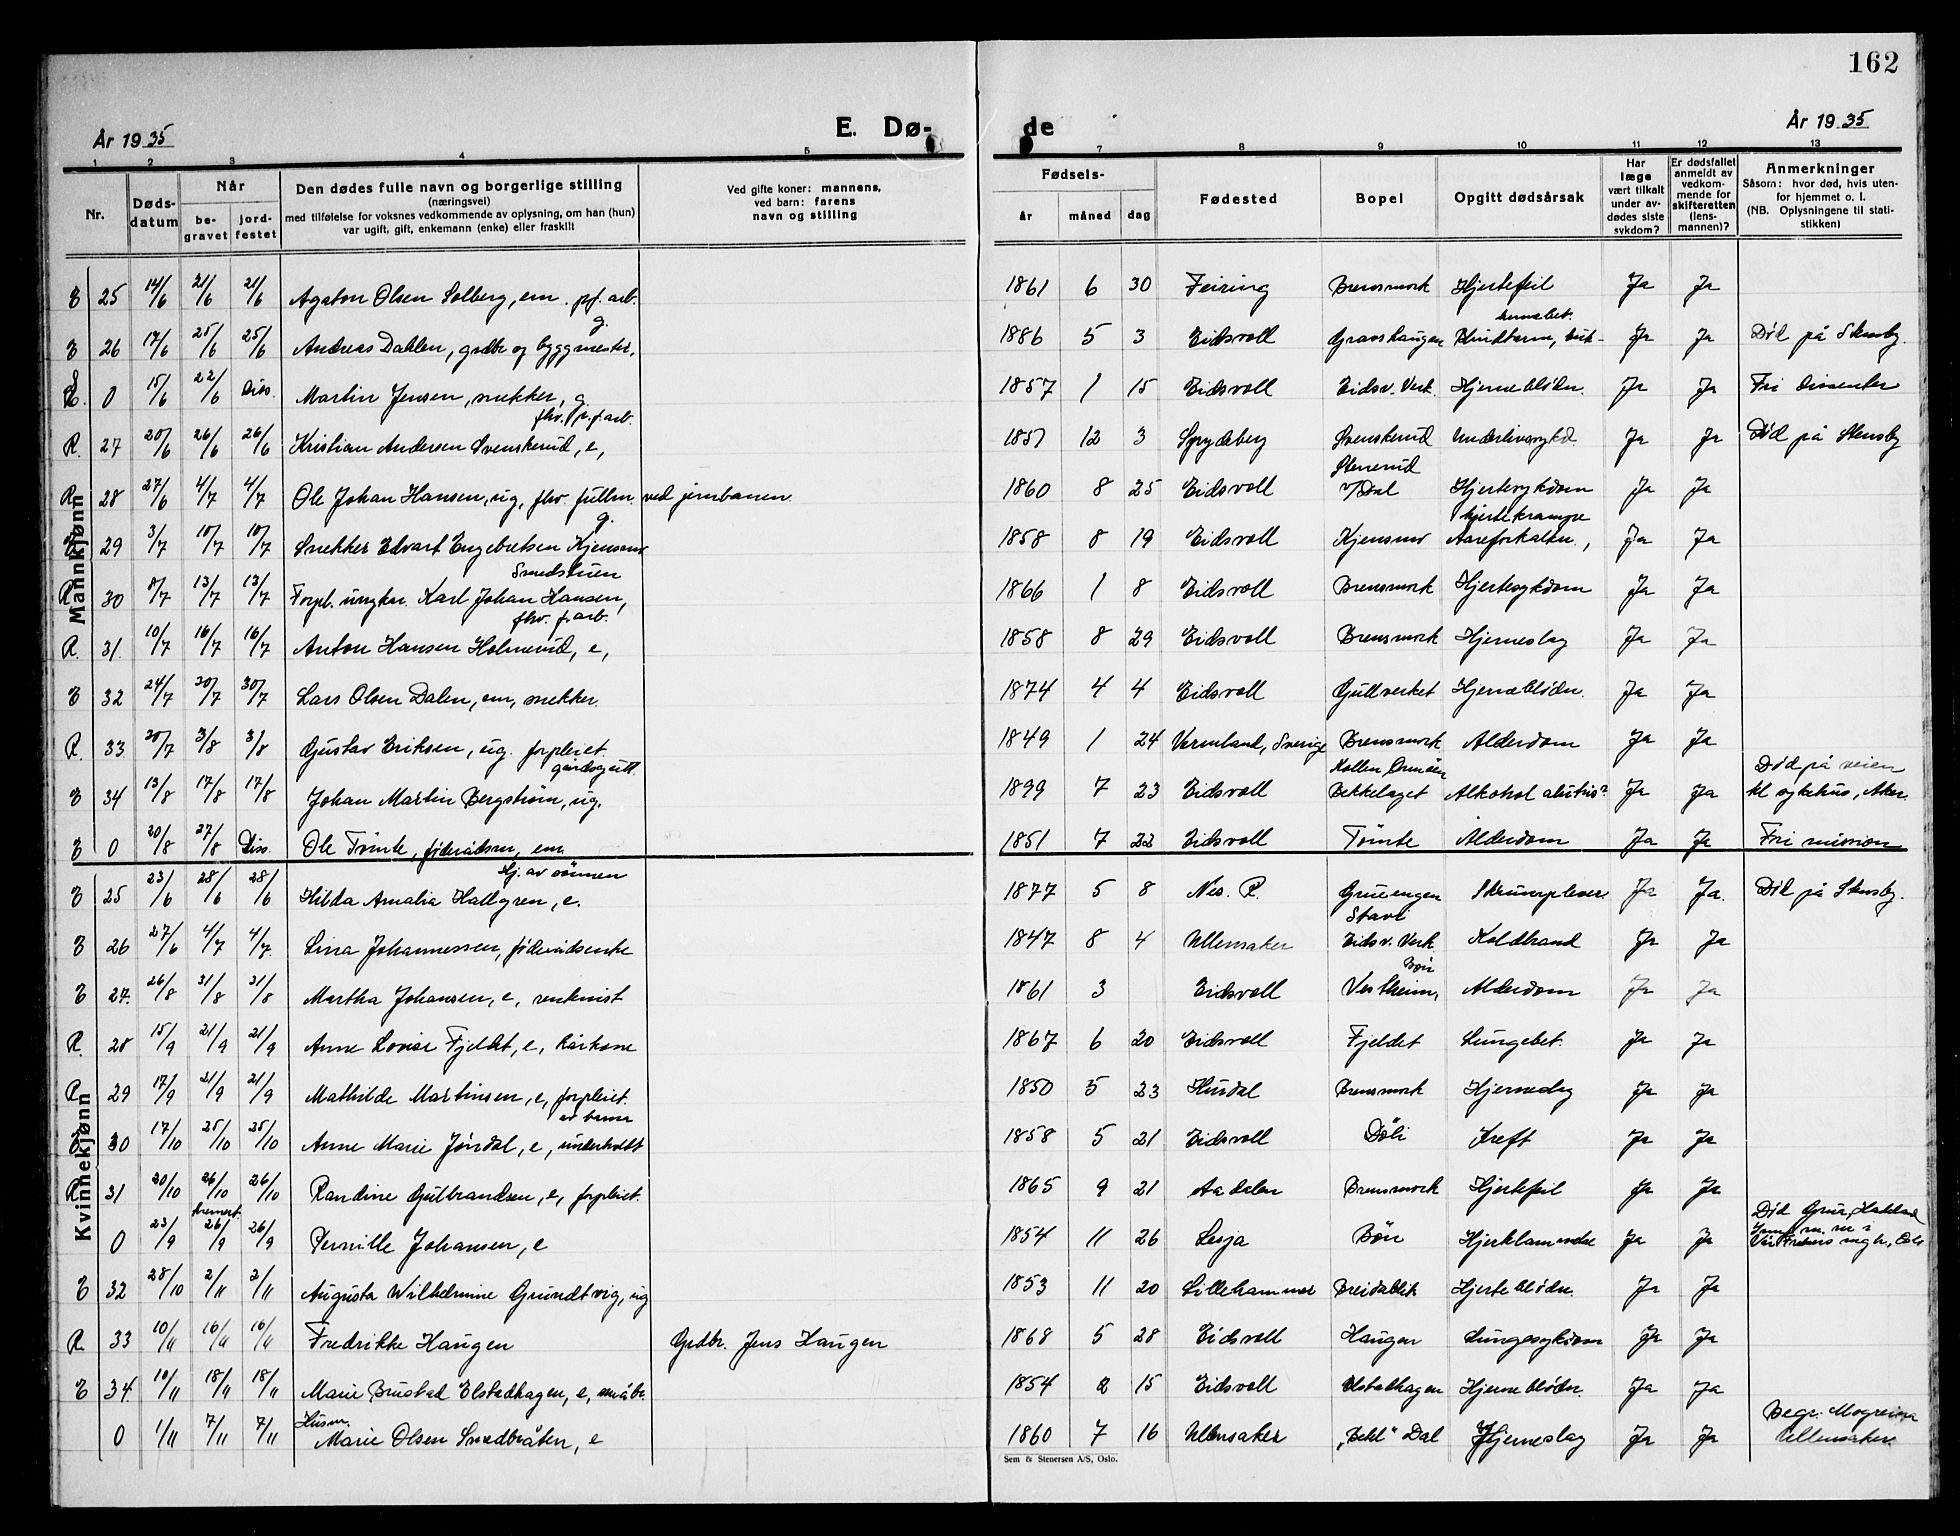 162
År 1935 E. Dø- de År 1935
1 2 3 4 5 7 8 9 10 11 12 13
Nr.
Døds-
datum
Når
be-
gravet
jord-
festet
Den dødes fulle navn og borgerlige stilling
(næringsvei)
med tilføielse for voksnes vedkommende av oplysning, om han (hun)
var ugift, gift, enkemann (enke) eller fraskilt
Ved gifte koner: mannens,
ved barn: farens
navn og stilling
Fødsels-
år måned dag
Fødested
Bopel
Opgitt dødsårsak
Har
læge
vært tilkalt
under av-
dødes siste
sykdom?
Er dødsfallet
anmeldt av
vedkom-
mende for
skifteretten
(lens-
mannen)?
Anmerkninger
Såsom: hvor død, hvis uten-
for hjemmet o. l.
(NB. Oplysningene til stati-
stikken)
Mannkjønn
E 25 14/6 21/6 21/6 Agaton Olsen Solberg, em. pf. arb. 1861 6 30 Feiring Brensmork Hjertefeil Ja Ja
E 26 17/6 25/6 25/6 Andreas Dahlen, grdbr og byggmester, g. 1886 5 3 Eidsvoll Gravshaugen Blindtarm, buk- hinnebet. Ja Ja Død på Stensby.
0 15/6 22/6 Diss. Martin Jensen, snekker, g. 1857 1 15 Eidsvoll Eidsv. Verk Hjerneblødn. Ja Ja Fri dissenter
R. 27 20/6 26/6 26/6 Kristian Andersen Svenskerud, e, fhv. p.f. arb. 1851 12 3 Spydeberg Svenskerud Underlivssykd. Ja Ja Død på Stensby
R 28 27/6 4/7 4/7 Ole Johan Hansen, ug, fhv. fullm. ved jernbanen. 1860 8 25 Eidsvoll Stenerud v/Dal Hjertesykdom Ja Ja
29 3/7 10/7 10/7 Snekker Edvart Engebretsen Kjensmo g. 1858 8 19 Eidsvoll Kjensmo Aareforkalkn., hjertekrampe Ja Ja
R 30 8/7 13/7 13/7 Forpl. ungkar Karl Johan Hansen, Smedstuen 1866 1 8 Eidsvoll Brensmork Hjertesykdom Ja Ja
R. 31. 10/7 16/7 16/7 Anton Hansen Holmerud, e, fhv. f. arb. 1858 8 29 Eidsvoll Brensmork Hjerneslag Ja Ja
E 32 24/7 30/7 30/7 Lars Olsen Dalen, em, snekker. 1874 4 4 Eidsvoll Gullverket Hjerneblødn. Ja Ja
R. 33 30/7 3/8 3/8 Gustav Eriksen, ug. forpleiet 1849 1 24 Vermland, Sverige Brensmork Alderdom Ja Ja
E 34 13/8 17/8 17/8 Johan Martin Bergstrøm, ug. gårdsgutt. 1899 7 23 Eidsvoll Bekkelaget Alkohol Ja Ja Død på veien til sykehus, Aker.
E 0 20/8 27/8 Diss. Ole Tømte, føderådsm, em. 1851 7 22 Eidsvoll Tømte Alderdom Ja Ja Fri misjon
Kvinnekjønn
E 25 23/6 28/6 28/6 Hilda Amalia Hallgren, e. Hj. av sønnen 1877 5 8 Nes. R. Grueengen Skrumplever Ja Ja. Død på Stensby.
E 26 27/6 4/7 4/7. Lina Johannessen, føderådsenke 1847 8 4 Ullensaker Eidsv. Verk Koldbrand Ja Ja
E 27. 26/8 31/8 31/8 Martha Johansen, e, rentenist 1861 3 Eidsvoll Vestheim, Bøn Alderdom Ja Ja
R. 28 15/9 21/9 21/9 Anne Lovise Fjeldet, e, kårkone 1867 6 20 Eidsvoll Fjeldet Lungebet. Ja Ja
R 29 17/9 21/9 21/9 Mathilde Martinsen, e, forpleiet. 1850 5 23 Hurdal Brensmork Hjerneslag Ja Ja
30 17/10 25/10 25/10 Anne Marie Jøndal, e, underholdt av barna 1858 5 21 Eidsvoll Døli Kreft Ja Ja
R 31 20/10 26/10 26/10 Randine Gulbrandsen, e, forpleiet. 1865 9 21 Aadalen Brensmork Hjertefeil Ja Ja
0 23/9 kremert. 26/9 26/9 Pernille Johansen, e 1854 11 26 Lesja Bøn Hjertelammelse Ja Ja Død Grua, Hadeland
E 32 28/10 2/11 2/11 Augusta Wilhelmine Grundtvig, ug 1853 11 20 Lillehammer Breidablik Hjerteblødn. Ja Ja
R 33 10/11 16/11 16/11 Fredrikke Haugen Grdbr. Jens Haugen 1868 5 28 Eidsvoll Haugen Lungesykdom Ja Ja
E 34. 10/11 18/11 18/11 Marie Brustad Elstadhagen, e, småbr. 1854 2 15 Eidsvoll Elstadhagen Hjerneblødn. Ja Ja
0 1/11 7/11 7/11 Husm. Marie Olsen Smedbråten, e 1860 7 16 Ullensaker Dal Hjerneslag Ja Ja Begr. Mogreina Ullensaker.
Sem & Stenersen A/S, Oslo.